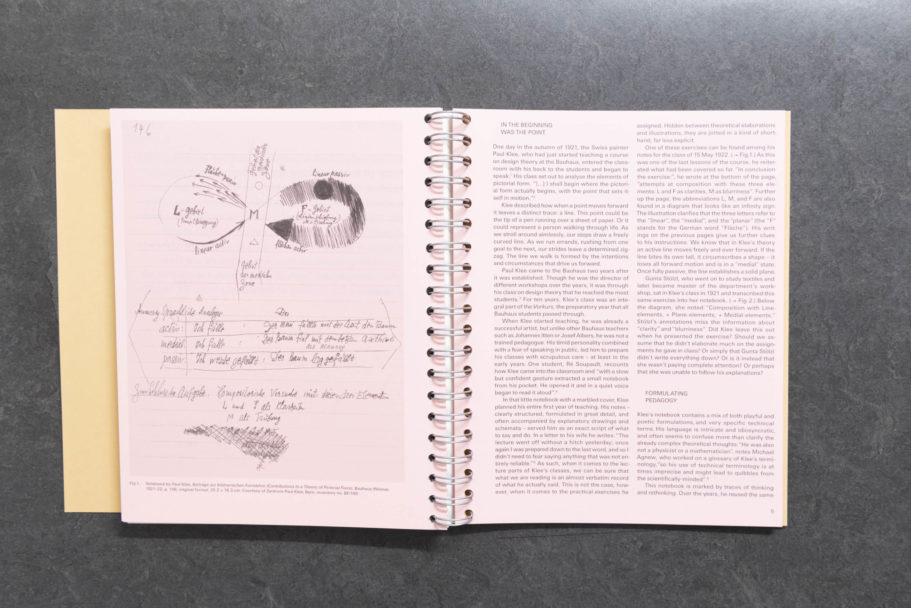 146
L-gebiet
M
F-gebiet
linear activ
linear passiv
gebiet
Gramm. Sprachliche Analogie
activ: Ich fälle
medial: Ich falle
passiv: Ich werde gefällt
L und F als Klarheit
M als Trübung
Fig. 1
IN THE BEGINNING
WAS THE POINT
One day in the autumn of 1921, the Swiss painter
Paul Klee, who had just started teaching a course
on design theory at the Bauhaus, entered the class-
room with his back to the students and began to
speak.¹ His class set out to analyse the elements of
pictorial form. "(...) I shall begin where the pictori-
al form actually begins, with the point that sets it-
self in motion."²
Klee described how when a point moves forward
it leaves a distinct trace: a line. This point could be
the tip of a pen running over a sheet of paper. Or it
could represent a person walking through life. As
we stroll around aimlessly, our steps draw a freely
curved line. As we run errands, rushing from one
goal to the next, our strides leave a determined zig-
zag. The line we walk is formed by the intentions
and circumstances that drive us forward.
Paul Klee came to the Bauhaus two years after
it was established. Though he was the director of
different workshops over the years, it was through
his class on design theory that he reached the most
students.³ For ten years, Klee's class was an inte-
gral part of the Vorkurs, the preparatory year that all
Bauhaus students passed through.
When Klee started teaching, he was already a
successful artist, but unlike other Bauhaus teachers
such as Johannes Itten or Josef Albers, he was not a
trained pedagogue. His timid personality combined
with a fear of speaking in public, led him to prepare
his classes with scrupulous care – at least in the
early years. One student, Ré Soupault, recounts
how Klee came into the classroom and "with a slow
but confident gesture extracted a small notebook
from his pocket. He opened it and in a quiet voice
began to read it aloud".⁴
In that little notebook with a marbled cover, Klee
planned his entire first year of teaching. His notes –
early structured, formulated in great detail, and
often accompanied by explanatory drawings and
schemata – served him as an exact script of what
to say and do. In a letter to his wife he writes: "The
lecture went off without a hitch yesterday; once
again I was prepared down to the last word, and so I
didn't need to fear saying anything that was not en-
tirely reliable."⁵ As such, when it comes to the lec-
ture parts of Klee's classes, we can be sure that
what we are reading is an almost verbatim record
of what he actually said. This is not the case, how-
ever, when it comes to the practical exercises he
assigned. Hidden between theoretical elaborations
and illustrations, they are jotted in a kind of short-
hand, far less explicit.
One of these exercises can be found among his
notes for the class of 15 May 1922. (→ Fig.1) As this
was one of the last lessons of the course, he reiter-
ated what had been covered so far. "In conclusion
the exercise", he wrote at the bottom of the page,
"attempts at composition with these three ele-
ments: L and F as clarities, M as blurriness". Further
up the page, the abbreviations L, M, and F are also
found in a diagram that looks like an infinity sign.
The illustration clarifies that the three letters refer to
the "linear", the "medial", and the "planar" (the "F"
stands for the German word "Fläche"). His writ-
ings on the previous pages give us further clues
to his instructions. We know that in Klee's theory
an active line moves freely and ever forward. If the
line bites its own tail, it circumscribes a shape – it
loses all forward motion and is in a "medial" state.
Once fully passive, the line establishes a solid plane.
Gunta Stölzl, who went on to study textiles and
later became master of the department's work-
shop, sat in Klee's class in 1921 and transcribed this
same exercise into her notebook. (→ Fig. 2) Below
the diagram, she noted: "Composition with Line-
elements, + Plane elements, + Medial elements."
Stölzl's annotations miss the information about
"clarity" and "blurriness". Did Klee leave this out
when he presented the exercise? Should we as-
sume that he didn't elaborate much on the assign-
ments he gave in class? Or simply that Gunta Stölzl
didn't write everything down? Or is it instead that
she wasn't paying complete attention? Or perhaps
that she was unable to follow his explanations?
FORMULATING
PEDAGOGY
Klee's notebook contains a mix of both playful and
poetic formulations, and very specific technical
terms. His language is intricate and idiosyncratic,
and often seems to confuse more than clarify the
already complex theoretical thoughts: "He was also
not a physicist or a mathematician", notes Michael
Agnew, who worked on a glossary of Klee's termi-
nology, "so his use of technical terminology is at
times imprecise and might lead to quibbles from
the scientifically-minded".⁶
This notebook is marked by traces of thinking
and rethinking. Over the years, he reused the same